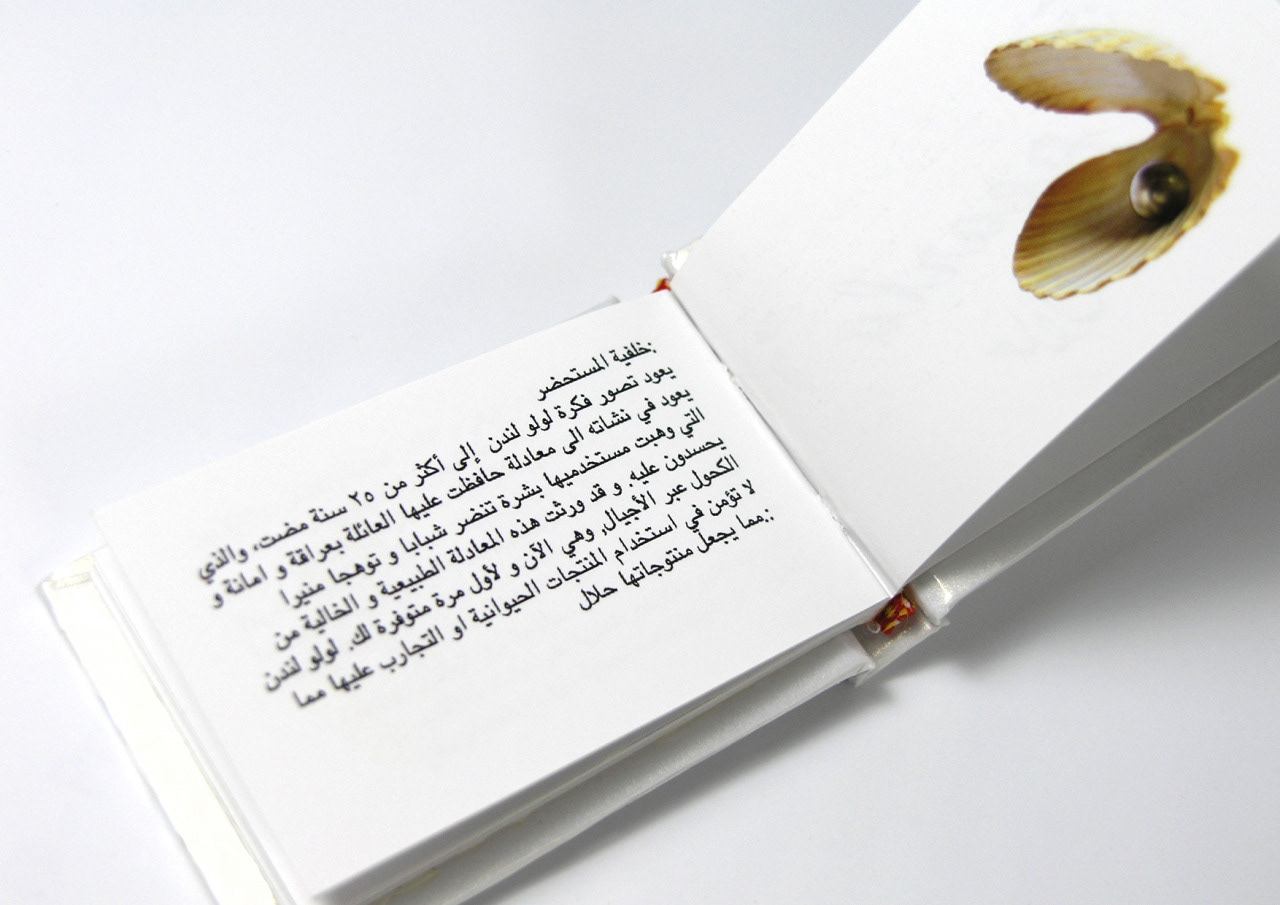 :خلفية المستحضر
يعود تصور فكرة لولو لندن إلى أكثر من ٢٥ سنة مضت، والذي
يعود في نشاته الى معادلة حافظت عليها العائلة بعراقة و امانة و
التي وهبت مستخدميها بشرة تنضر شبابا و توهجا منيرا
يحسدون عليه و قد ورثت هذه المعادلة الطبيعية و الخالية من
الكحول عبر الأجيال, وهي الآن و لأول مرة متوفرة لك. لولو لندن
لا تؤمن في استخدام المنتجات الحيوانية او التجارب عليها مما
.:مما يجعل منتوجاتها حلال